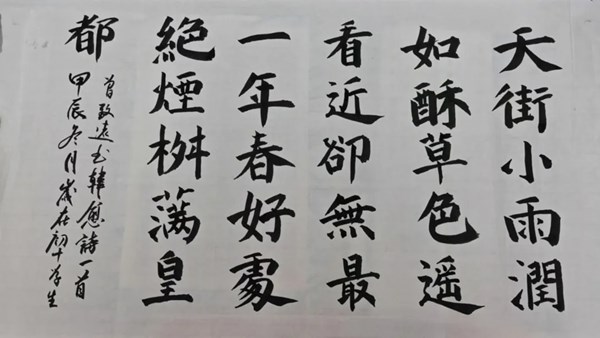 天街小雨潤
如酥草色遥
看近卻無最
一年春好處
絕煙柳满皇
都
曾致遠书韓愈詩一首
甲辰冬月歲在初十学生